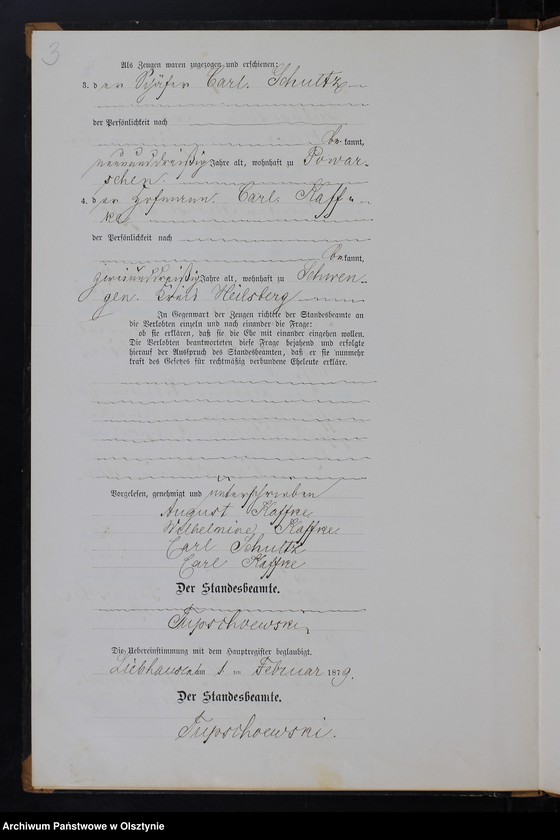 3
Als Zeugen waren zugezogen und erschienen:
3. der Schäfer Carl Schultz
der Persönlichkeit nach
be kannt,
neununddreißig Jahre alt, wohnhaft zu Powar-
schen.
4. der Hofmann Carl Kaff-
ke
der Persönlichkeit nach
be kannt,
zweiunddreißig Jahre alt, wohnhaft zu Schwen-
gen Kreis Heilsberg
In Gegenwart der Zeugen richtete der Standesbeamte an
die Verlobten einzeln und nach einander die Frage:
ob sie erklären, daß sie die Ehe mit einander eingehen wollen.
Die Verlobten beantworteten diese Frage bejahend und erfolgte
hierauf der Ausspruch des Standesbeamten, daß er sie nunmehr
kraft des Gesetzes für rechtmäßig verbundene Eheleute erkläre.
Vorgelesen, genehmigt und unterschrieben
August Kaffke
Wilhelmine Kaffke
Carl Schultz
Carl Kaffke
Der Standesbeamte.
Die Uebereinstimmung mit dem Hauptregister beglaubigt.
Liebhausen am 1 ten Februar 1879.
Der Standesbeamte.
Archiwum Państwowe w Olsztynie